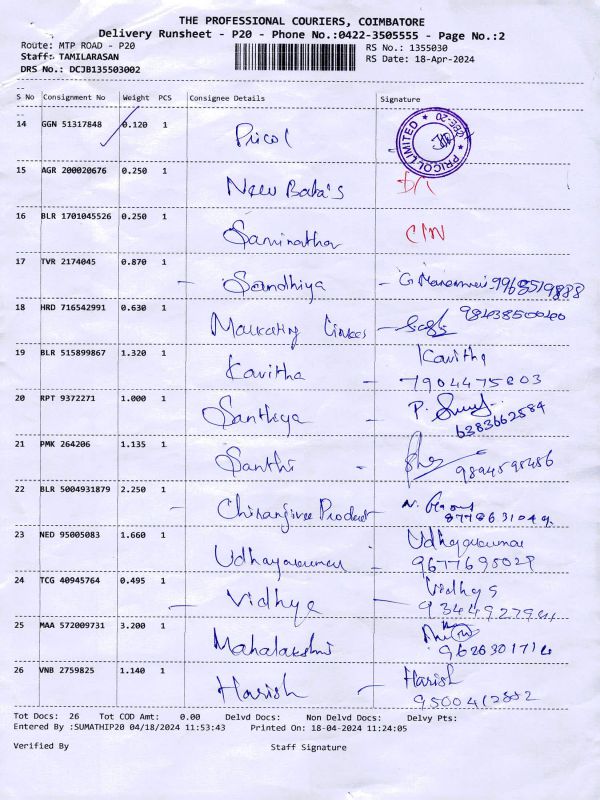 THE PROFESSIONAL COURIERS, COIMBATORE
Delivery Runsheet - P20 - Phone No.:0422-3505555 - Page No.:2
Route: MTP ROAD - P20
RS No.: 1355030
Staff: TAMILARASAN
RS Date: 18-Apr-2024
DRS No.: DCJB135503002
S No Consignment No Weight PCS Consignee Details Signature
14 GGN 51317848 0.120 1 Pricol PRICOL LIMITED
15 AGR 200020676 0.250 1 New Baba's
16 BLR 1701045526 0.250 1 Saminathan
17 TVR 2174045 0.870 1 Sandhiya
18 HRD 716542991 0.630 1 Marketing Links
19 BLR 515899867 1.320 1 Kavitha Kavitha
7904475803
20 RPT 9372271 1.000 1 Santhiya P.
6383662584
21 PMK 264206 1.135 1 Santhi
22 BLR 5004931879 2.250 1 Chiranjivee Product
23 NED 95005083 1.660 1 Udhayakumar Udhayakumar
9677695029
24 TCG 40945764 0.495 1 Vidhya Vidhya
25 MAA 572009731 3.200 1 Mahalakshmi
9626301714
26 VNB 2759825 1.140 1 Harish Harish
9500412882
Tot Docs: 26 Tot COD Amt: 0.00 Delvd Docs: Non Delvd Docs: Delvy Pts:
Entered By :SUMATHIP20 04/18/2024 11:53:43 Printed On: 18-04-2024 11:24:05
Verified By Staff Signature